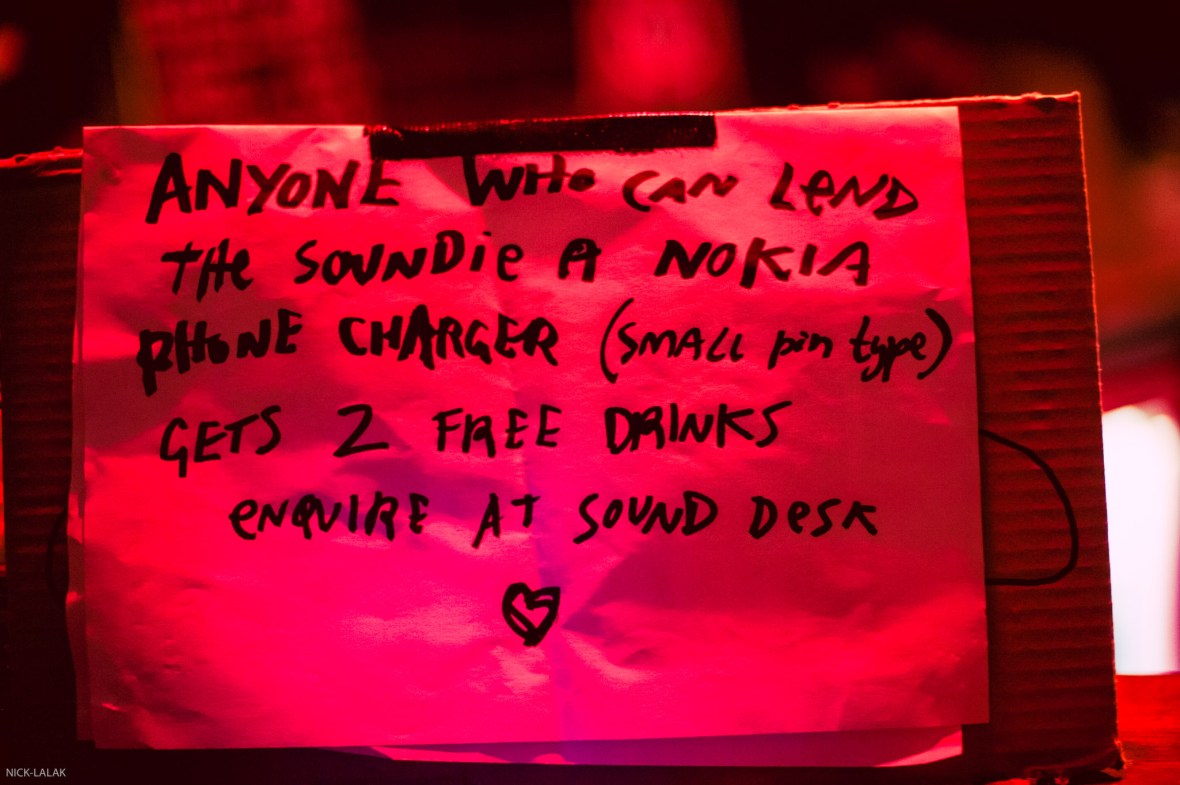 ANYONE WHO CAN LEND
THE SOUNDie A NOKIA
PHONE CHARGER (SMALL pin type)
GETS 2 FREE DRINKS
eNQUIRE AT SOUND DesK
NICK-LALAK